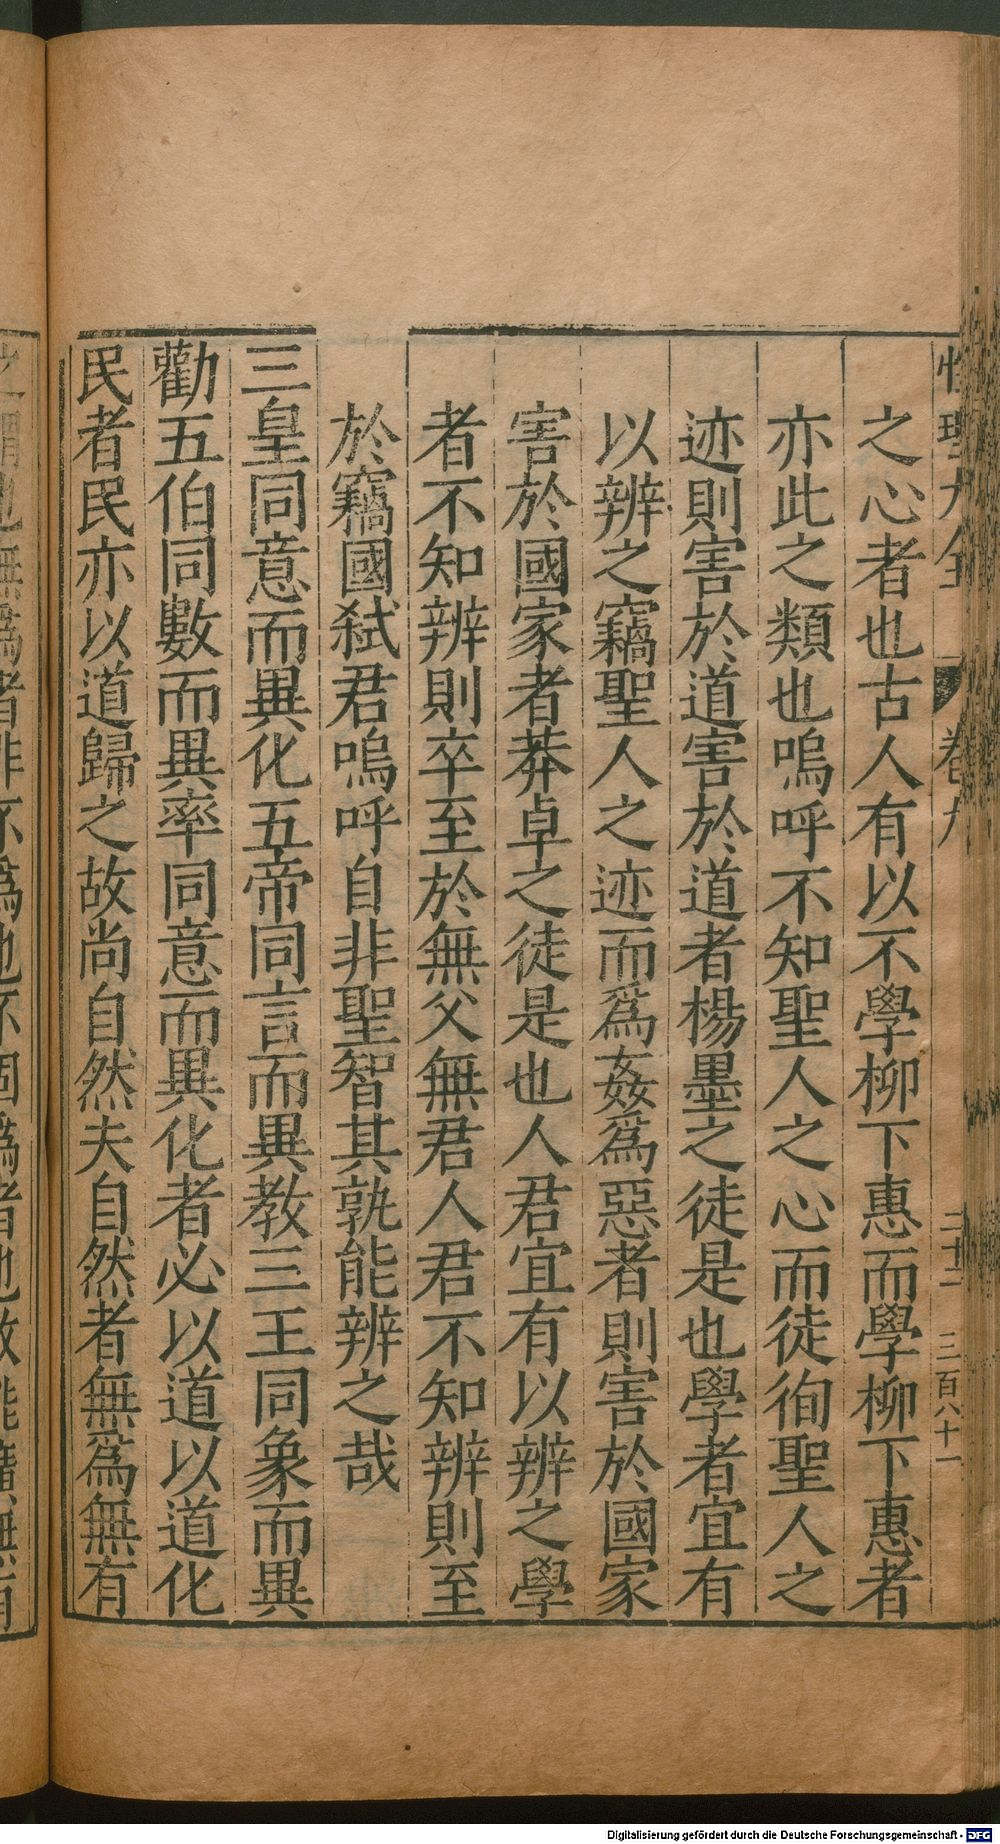 性理大全 卷九 二十二 三百八十一
之心者也古人有以不學柳下惠而學柳下惠者
亦此之類也嗚呼不知聖人之心而徒徇聖人之
迹則害於道害於道者楊墨之徒是也學者宜有
以辨之竊聖人之迹而爲姦爲惡者則害於國家
害於國家者莽卓之徒是也人君宜有以辨之學
者不知辨則卒至於無父無君人君不知辨則至
於竊國弑君嗚呼自非聖智其孰能辨之哉
三皇同意而異化五帝同言而異教三王同象而異
勸五伯同數而異率同意而異化者必以道以道化
民者民亦以道歸之故尚自然夫自然者無爲無有
之謂也無爲者非不爲也不固爲者也故能廣無有
Digitalisierung gefördert durch die Deutsche Forschungsgemeinschaft - DFG